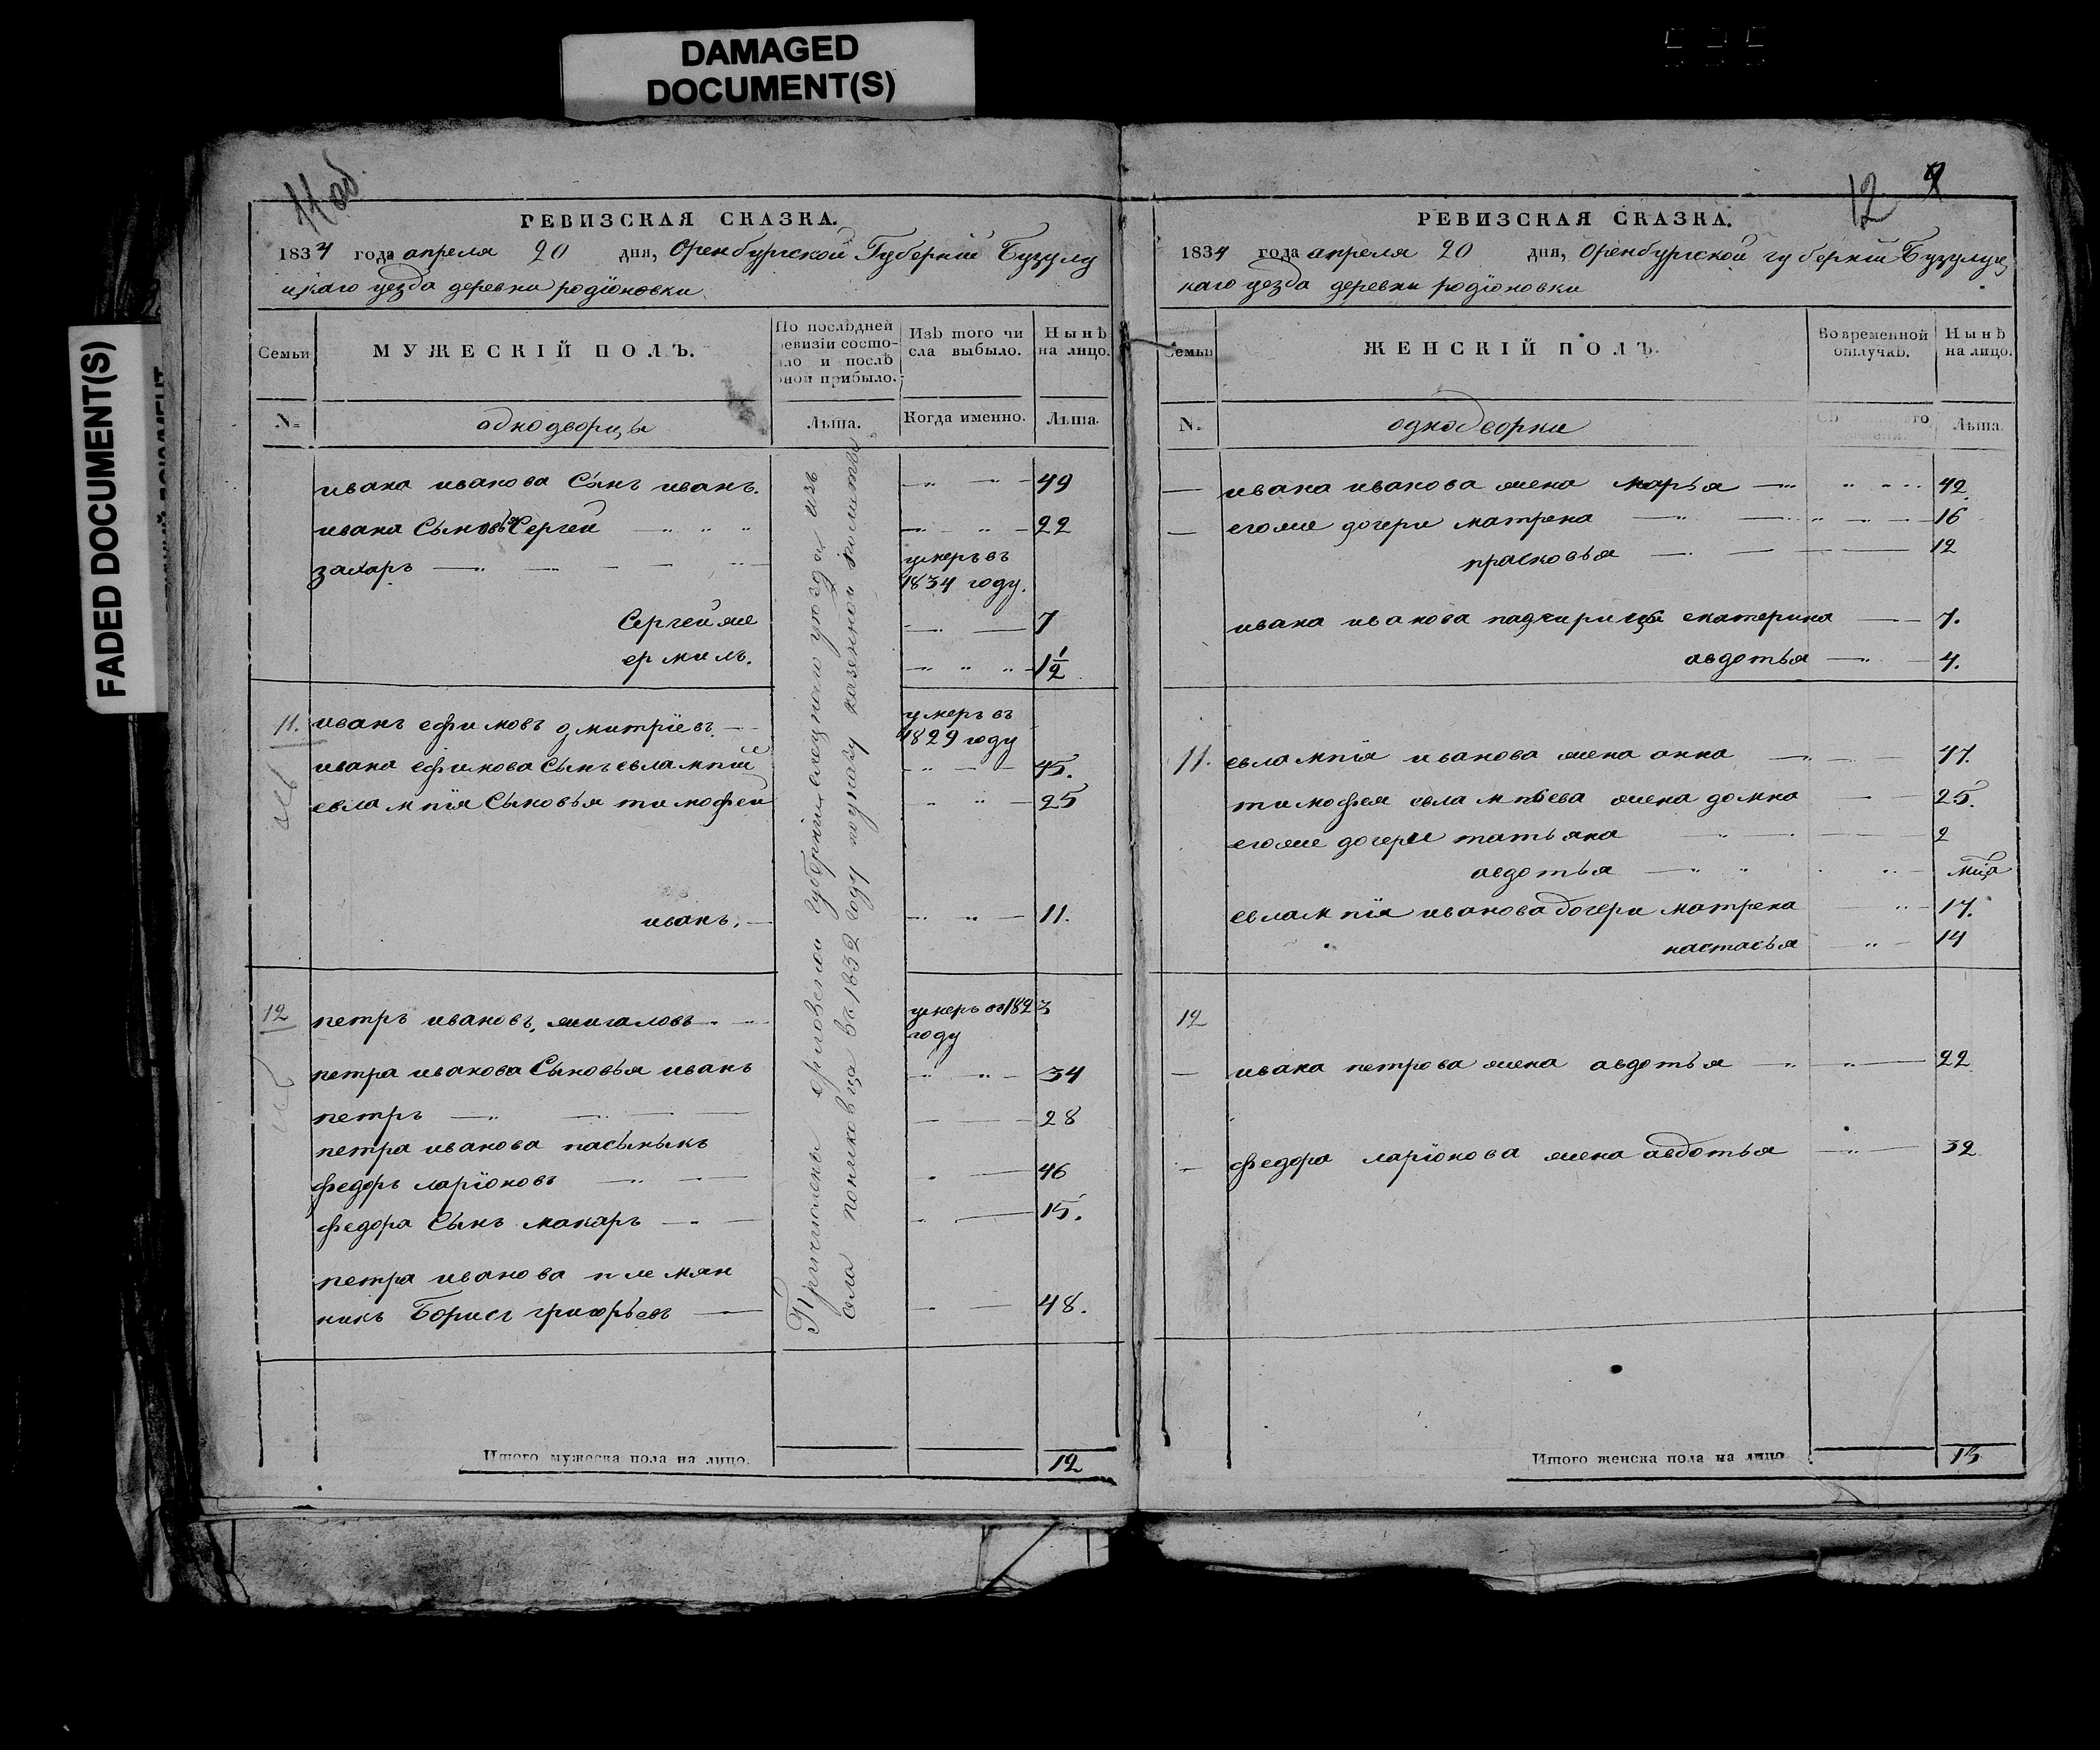 DAMAGED
DOCUMENT(S)
FADED DOCUMENT(S)
11 об.
РЕВИЗСКАЯ СКАЗКА.
1834 года апреля 20 дня, Оренбургской Губернiи Бузулу
цкаго уезда деревни родiоновки
Семьи
МУЖЕСКIЙ ПОЛЪ.
По послѣдней
ревизiи состо-
яло и послѣ
оной прибыло.
Изъ того чи
сла выбыло.
Нынѣ
на лицо.
№
однодворцы
Лѣта.
Когда именно.
Лѣта.
ивана иванова Сынъ иванъ. 49
ивана Сыновья Сергей 22
захаръ умеръ въ
1834 году.
Сергей же 7
ермилъ. 1 1/2
11. иванъ ефимовъ дмитрiевъ умеръ въ
1829 году
ивана ефимова Сынъ евлампiй 45.
евлампiя Сыновья тимофей 25
иванъ. 11.
12 петръ ивановъ, жигаловъ умеръ въ 1823
году
петра иванова Сыновья иванъ 34
петръ 28
петра иванова пасыныкъ
федоръ ларiоновъ 46
федора Сынъ макаръ 15.
петра иванова племян
никъ Борисъ григорьевъ 48.
Итого мужеска пола на лицо. 12
Причислены орловской губернiи елецкаго уезда изъ
в 1832 году по указу казенной палаты
12 9
РЕВИЗСКАЯ СКАЗКА.
1834 года апреля 20 дня, Оренбургской губернiи Бузулуц
каго уезда деревни родiоновки
Семьи
ЖЕНСКIЙ ПОЛЪ.
Во временной
отлучкѣ.
Нынѣ
на лицо.
N.
однодворки
Лѣта.
ивана иванова жена марья 42
егоже дочери матрена 16
прасковья 12
ивана иванова падчирицы екатерина 7.
авдотья 4.
11. евлампiя иванова жена анна 47.
тимофея евлампьева жена домна 25.
егоже дочери татьяна 2
авдотья мца
евлампiя иванова дочери матрена 17.
настасья 14
12
ивана петрова жена авдотья 22
федора ларiонова жена авдотья 32
Итого женска пола на лицо 13